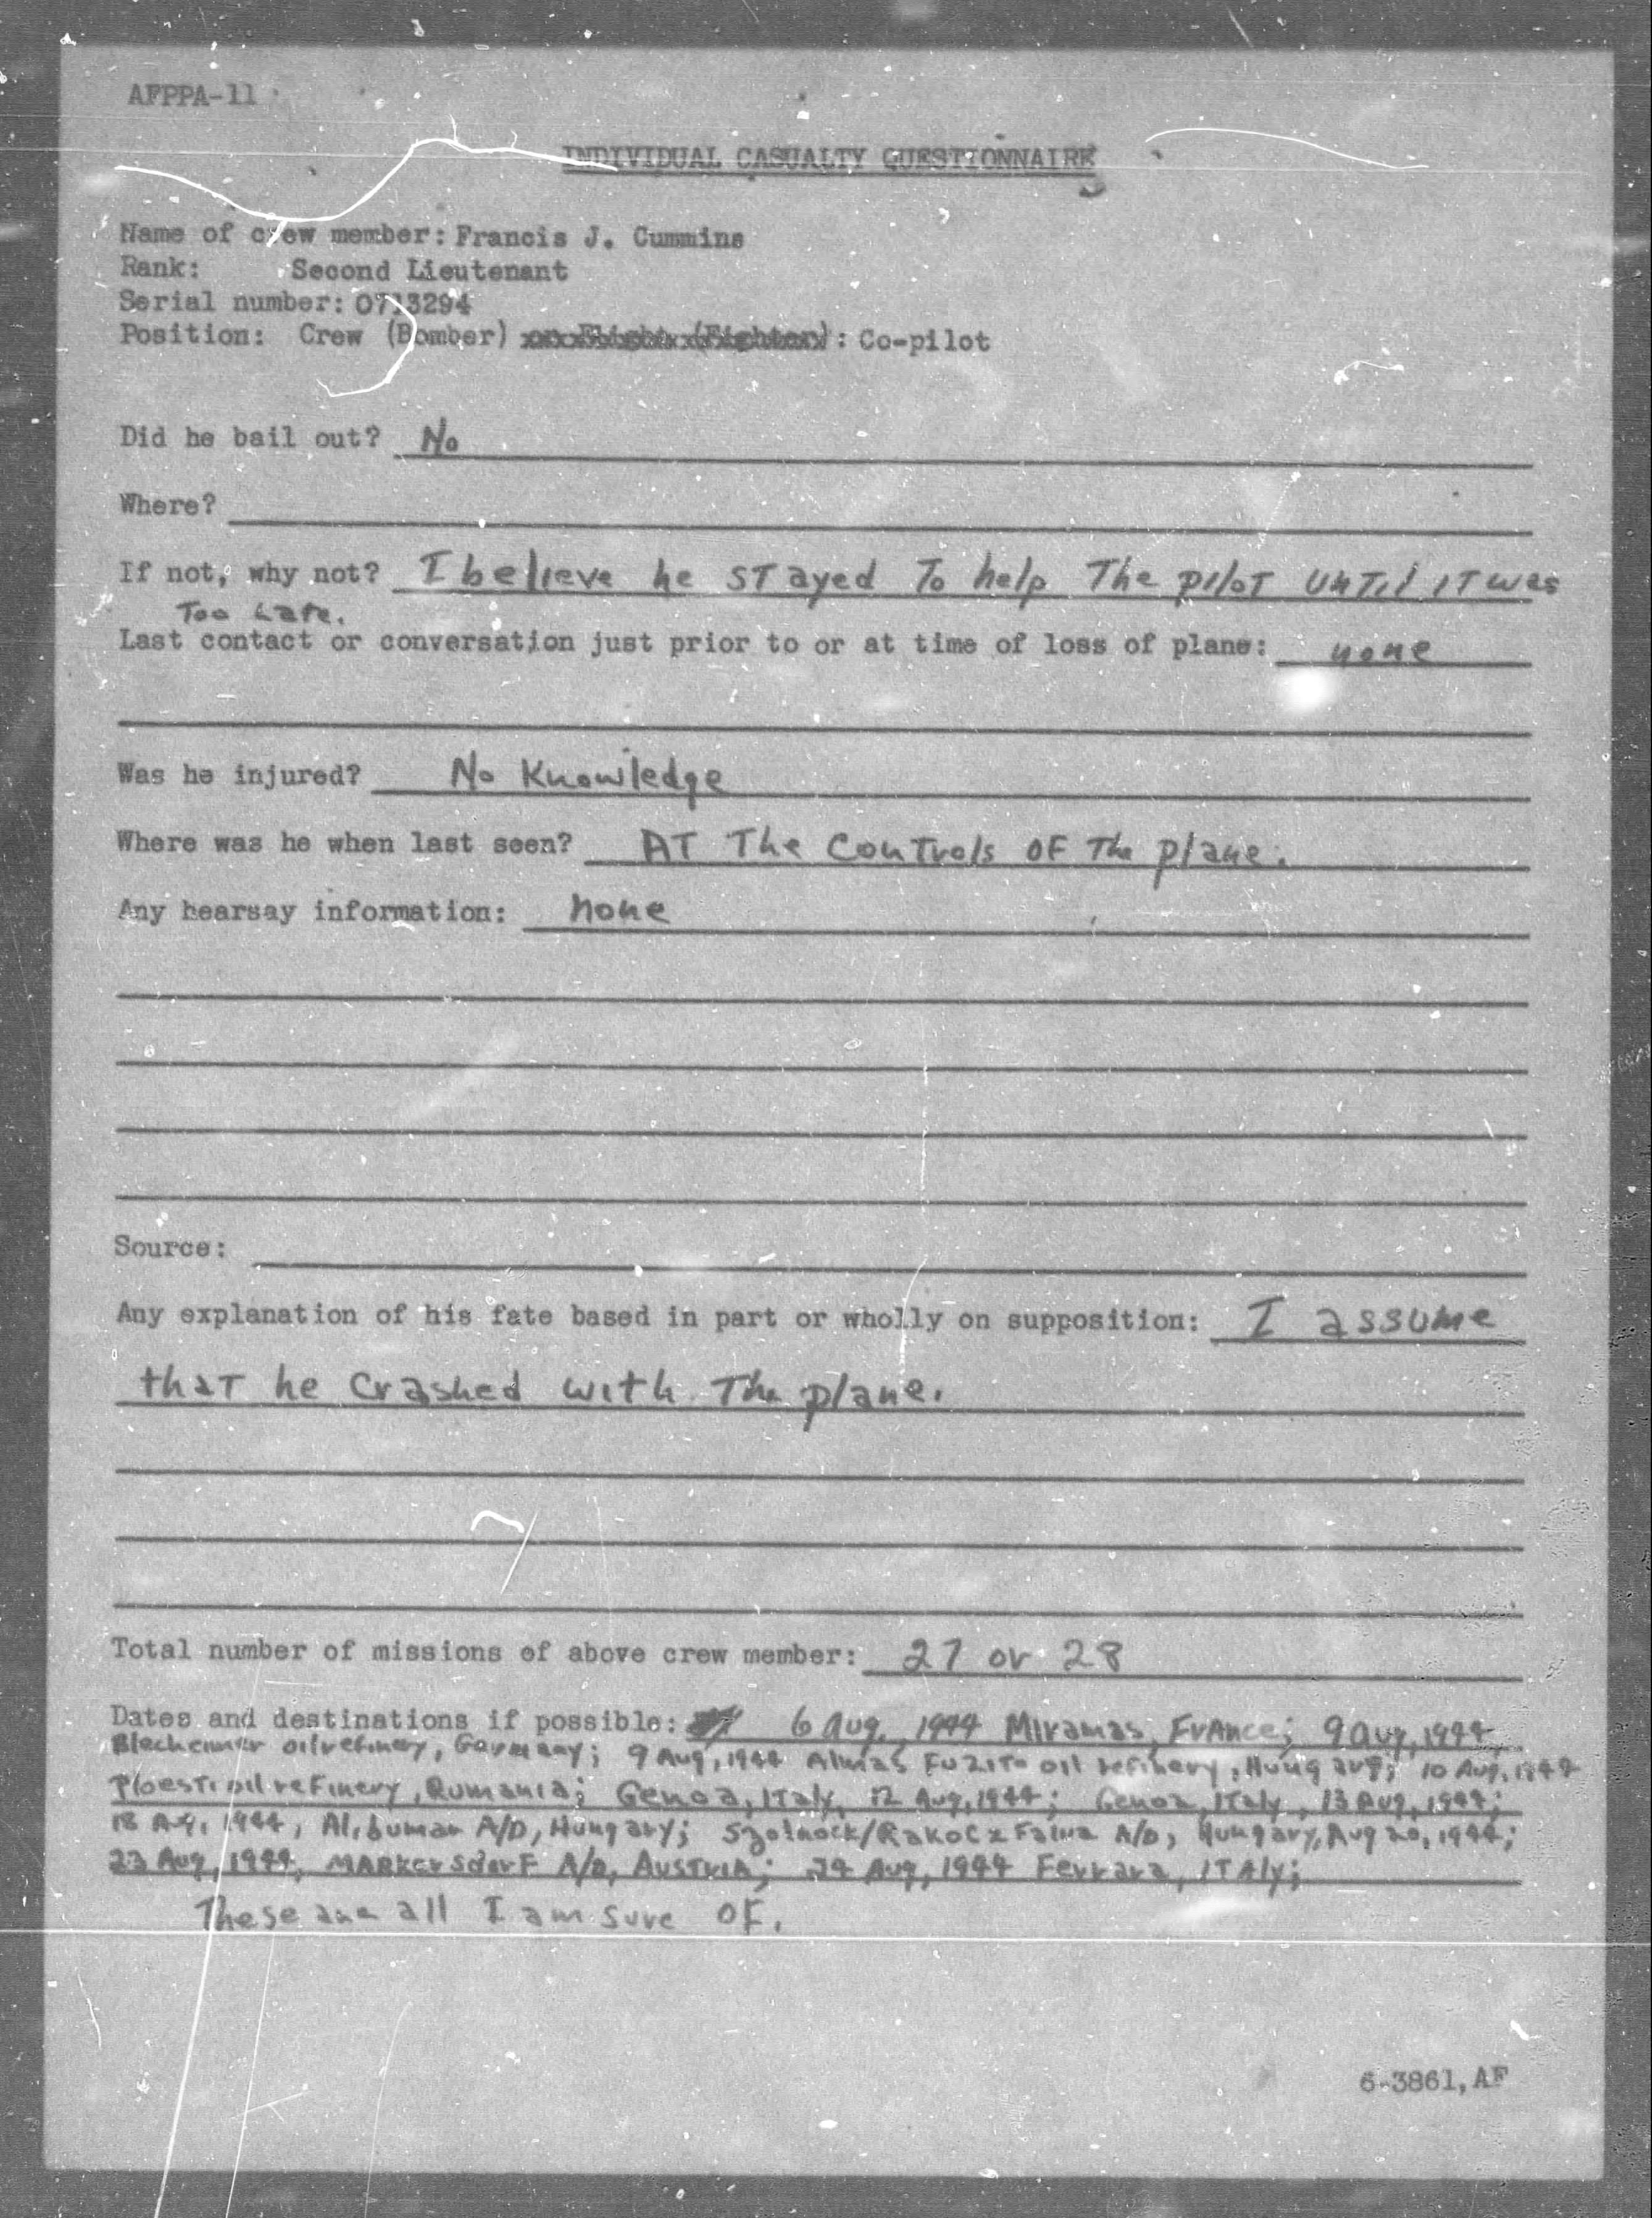 AFPPA-11
INDIVIDUAL CASUALTY QUESTIONNAIRE
Name of crew member: Francis J. Cummins
Rank: Second Lieutenant
Serial number: 0713294
Position: Crew (Bomber) or Flight (Fighter): Co-pilot
Did he bail out? No
Where?
If not, why not? I believe he stayed To help The pilot until it was
Too Late.
Last contact or conversation just prior to or at time of loss of plane: none
Was he injured? No Knowledge
Where was he when last seen? AT The Controls OF The plane.
Any hearsay information: none
Source:
Any explanation of his fate based in part or wholly on supposition: I assume
that he crashed with The plane.
Total number of missions of above crew member: 27 or 28
Dates and destinations if possible: 6 Aug., 1944 Miramas, France; 9 Aug, 1944,
Blechemmer oil refinery, Germany; 9 Aug, 1944 Almas Fuzito oil refinery, Hungary; 10 Aug, 1944
Ploesti oil refinery, Rumania; Genoa, Italy, 12 Aug, 1944; Genoa, Italy, 13 Aug, 1944;
18 Aug, 1944, Alibunar A/D, Hungary; Szolnock/Rakocz Falua A/D, Hungary, Aug 20, 1944;
23 Aug, 1944, MARKersdorF A/D, AUSTRIA; 24 Aug, 1944 Ferrara, ITAly;
These are all I am sure OF.
6-3861, AF